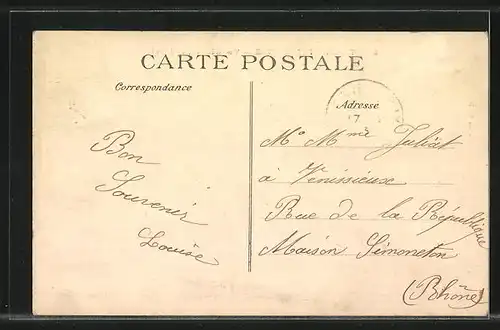 CARTE POSTALE
Correspondance
Adresse
7
Bon
Souvenir
Louise
Mr Mme Juliat
à Venissieux
Rue de la République
Maison Simoneton
(Rhône)